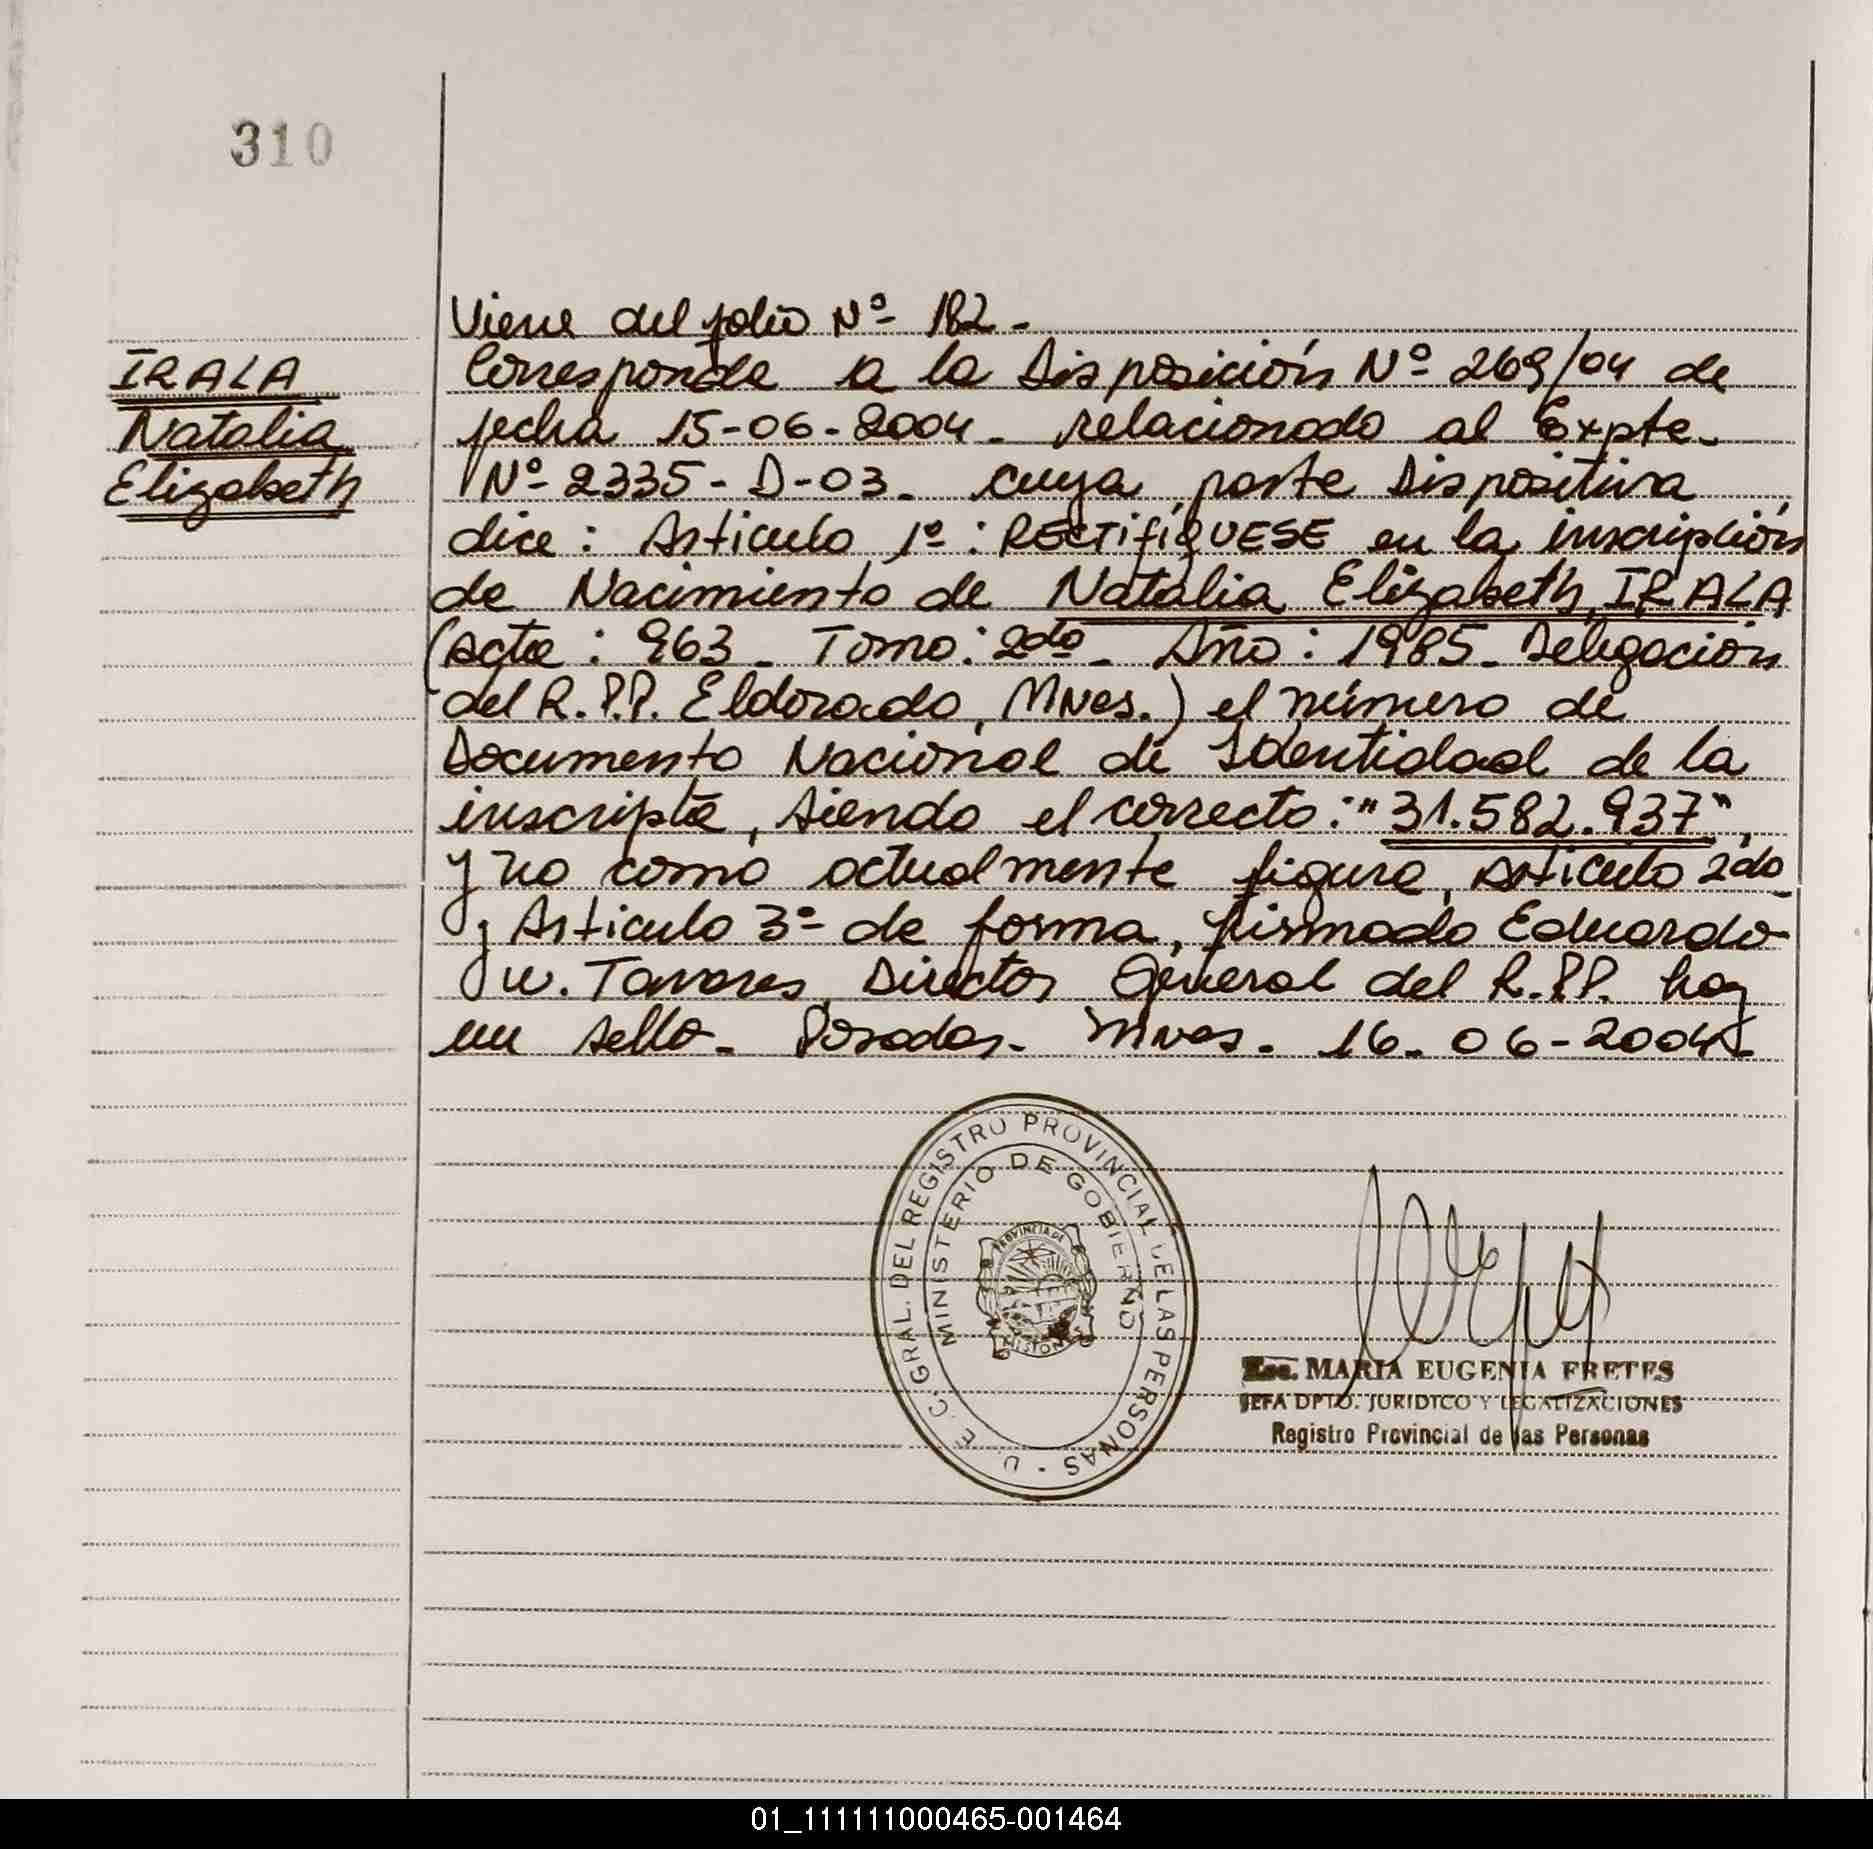 310
IRALA
Natalia
Elizabeth
Viene del folio Nº 182.
Corresponde a la Disposición Nº 269/04 de
fecha 15-06-2004. relacionado al Expte.
Nº 2335-D-03. cuya parte dispositiva
dice: Articulo 1º: RECTIFÍQUESE en la inscripción
de Nacimiento de Natalia Elizabeth IRALA
(acta: 963. Tomo: 2do. Año: 1985. Delegación
del R.P.P. Eldorado, Mnes.) el número de
Documento Nacional de Identidad de la
inscripta, siendo el correcto: "31.582.937",
y no como actualmente figura, Articulo 2do
y Articulo 3º de forma, firmado Eduardo
W. Tavares, Director General del R.P.P. hay
un sello. Posadas. Mnes. 16.06-2004.
D. E. C. GRAL. DEL REGISTRO PROVINCIAL DE LAS PERSONAS
MINISTERIO DE GOBIERNO
PROVINCIA DE
MISIONES
Esc. MARIA EUGENIA FRETES
JEFA DPTO. JURIDICO Y LEGALIZACIONES
Registro Provincial de las Personas
01_111111000465-001464